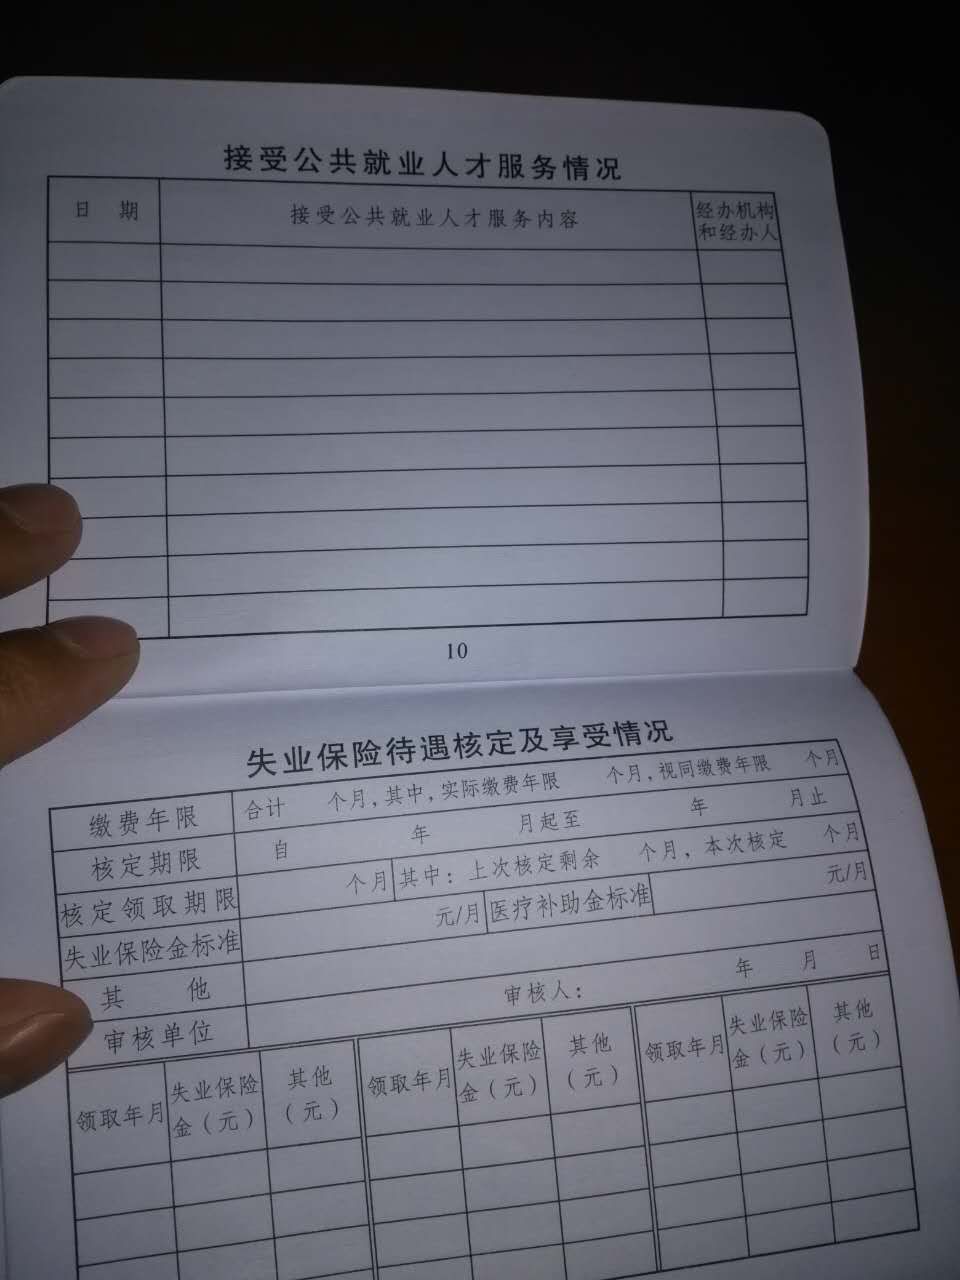 接受公共就业人才服务情况
日 期 接受公共就业人才服务内容 经办机构
和经办人
10
失业保险待遇核定及享受情况
缴费年限 合计 个月,其中,实际缴费年限 个月,视同缴费年限 个月
核定期限 自 年 月起至 年 月止
核定领取期限 个月 其中:上次核定剩余 个月,本次核定 个月
失业保险金标准 元/月 医疗补助金标准 元/月
其 他
审核单位 审核人: 年 月 日
领取年月 失业保险金(元) 其他(元) 领取年月 失业保险金(元) 其他(元) 领取年月 失业保险金(元) 其他(元)